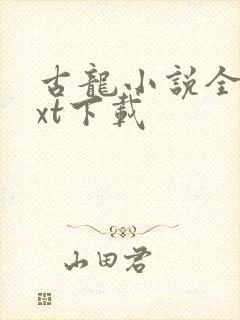 古龍小説全
xt下載
山田君